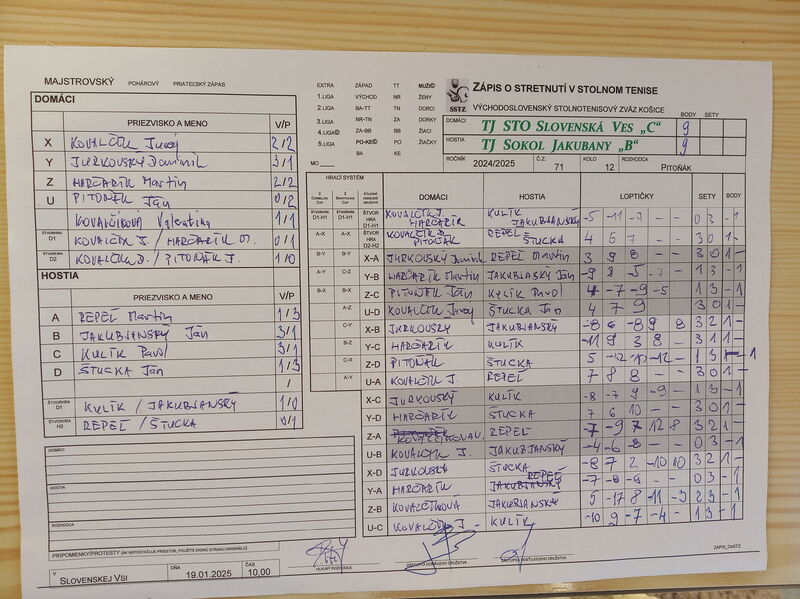 MAJSTROVSKÝ POHÁROVÝ PRIATEĽSKÝ ZÁPAS
DOMÁCI
PRIEZVISKO A MENO V/P
X KOVALČÍK Juraj 2/2
Y JURKOVSKÝ Dominik 3/1
Z MARGARÍK Martin 2/2
U PITOŇÁK Ján 0/2
KOVALČÍKOVÁ Valentína 1/1
ŠTVORHRA D1 KOVALČÍK J. / MARGARÍK M. 0/1
D2 KOVALČÍK D. / PITOŇÁK J. 1/0
HOSTIA
PRIEZVISKO A MENO V/P
A REPEĽ Martin 1/3
B JAKUBJANSKÝ Ján 3/1
C KULÍK Pavol 3/1
D ŠTUCKA Ján 1/3
/
ŠTVORHRA D1 KULÍK / JAKUBJANSKÝ 1/0
ŠTVORHRA H2 REPEĽ / ŠTUCKA 0/1
DOMÁCI
HOSTIA
ROZHODCA
PRIPOMIENKY/PROTESTY (AK NEPOSTAČUJE PRIESTOR, POUŽITE ZADNÚ STRANU ORIGINÁLU)
V SLOVENSKEJ VSI DŇA 19.01.2025 ČAS 10,00
EXTRA ZÁPAD TT MUŽI
1.LIGA VÝCHOD NR ŽENY
2.LIGA BA-TT TN DORCI
3.LIGA NR-TN ZA DORKY
4.LIGA ZA-BB BB ŽIACI
5.LIGA PO-KE PO ŽIAČKY
MO BA KE
SSTZ
ZÁPIS O STRETNUTÍ V STOLNOM TENISE
VÝCHODOSLOVENSKÝ STOLNOTENISOVÝ ZVÄZ KOŠICE
BODY SETY
DOMÁCI TJ STO SLOVENSKÁ VES „C“ 9
HOSTIA TJ SOKOL JAKUBANY „B“ 9
ROČNÍK 2024/2025 Č.Z. 71 KOLO 12 ROZHODCA PITOŇÁK
HRACÍ SYSTÉM
DOMÁCI HOSTIA LOPTIČKY SETY BODY
KOVALČÍK J. MARGARÍK KULÍK JAKUBJANSKÝ -5 -11 -7 - - 0 3 -1
PITOŇÁK REPEĽ ŠTUCKA 4 6 7 - - 3 0 1 -
X-A JURKOVSKÝ Dominik REPEĽ Martin 3 9 8 - - 3 0 1 -
Y-B MARGARÍK Martin JAKUBJANSKÝ Ján -9 8 5 -7 - 1 3 -1
Z-C PITOŇÁK Ján KULÍK Pavol 4 -7 -9 -5 1 3 -1
U-D KOVALČÍK Juraj ŠTUCKA Ján 4 7 9 3 0 1 -
X-B JURKOVSKÝ JAKUBJANSKÝ -8 6 -8 9 8 3 2 1 -
Y-C MARGARÍK KULÍK -11 9 3 8 - 3 1 1 -
Z-D PITOŇÁK ŠTUCKA 5 -12 -10 -12 - 1 3 - 1
U-A KOVALČÍK J. REPEĽ 7 8 8 - - 3 0 1 -
X-C JURKOVSKÝ KULÍK -8 -7 9 -9 - 1 3 -1
Y-D MARGARÍK ŠTUCKA 7 6 10 - - 3 0 1 -
Z-A KOVALČÍKOVÁ V. REPEĽ -7 -9 7 12 8 3 2 1 -
U-B KOVALČÍK J. JAKUBJANSKÝ -6 -6 -8 - - 0 3 -1
X-D JURKOVSKÝ ŠTUCKA -8 7 2 -10 10 3 2 1 -
Y-A MARGARÍK REPEĽ -7 -8 -8 - - 0 3 -1
Z-B KOVALČÍKOVÁ JAKUBJANSKÝ 5 -17 8 -11 -9 2 3 -1
U-C KOVALČÍK J. KULÍK -10 9 -7 -4 - 1 3 -1
HLAVNÝ ROZHODCA ZÁSTUPCA DOMÁCEHO DRUŽSTVA ZÁSTUPCA HOSŤUJÚCEHO DRUŽSTVA
ZÁPIS_OsSTZ